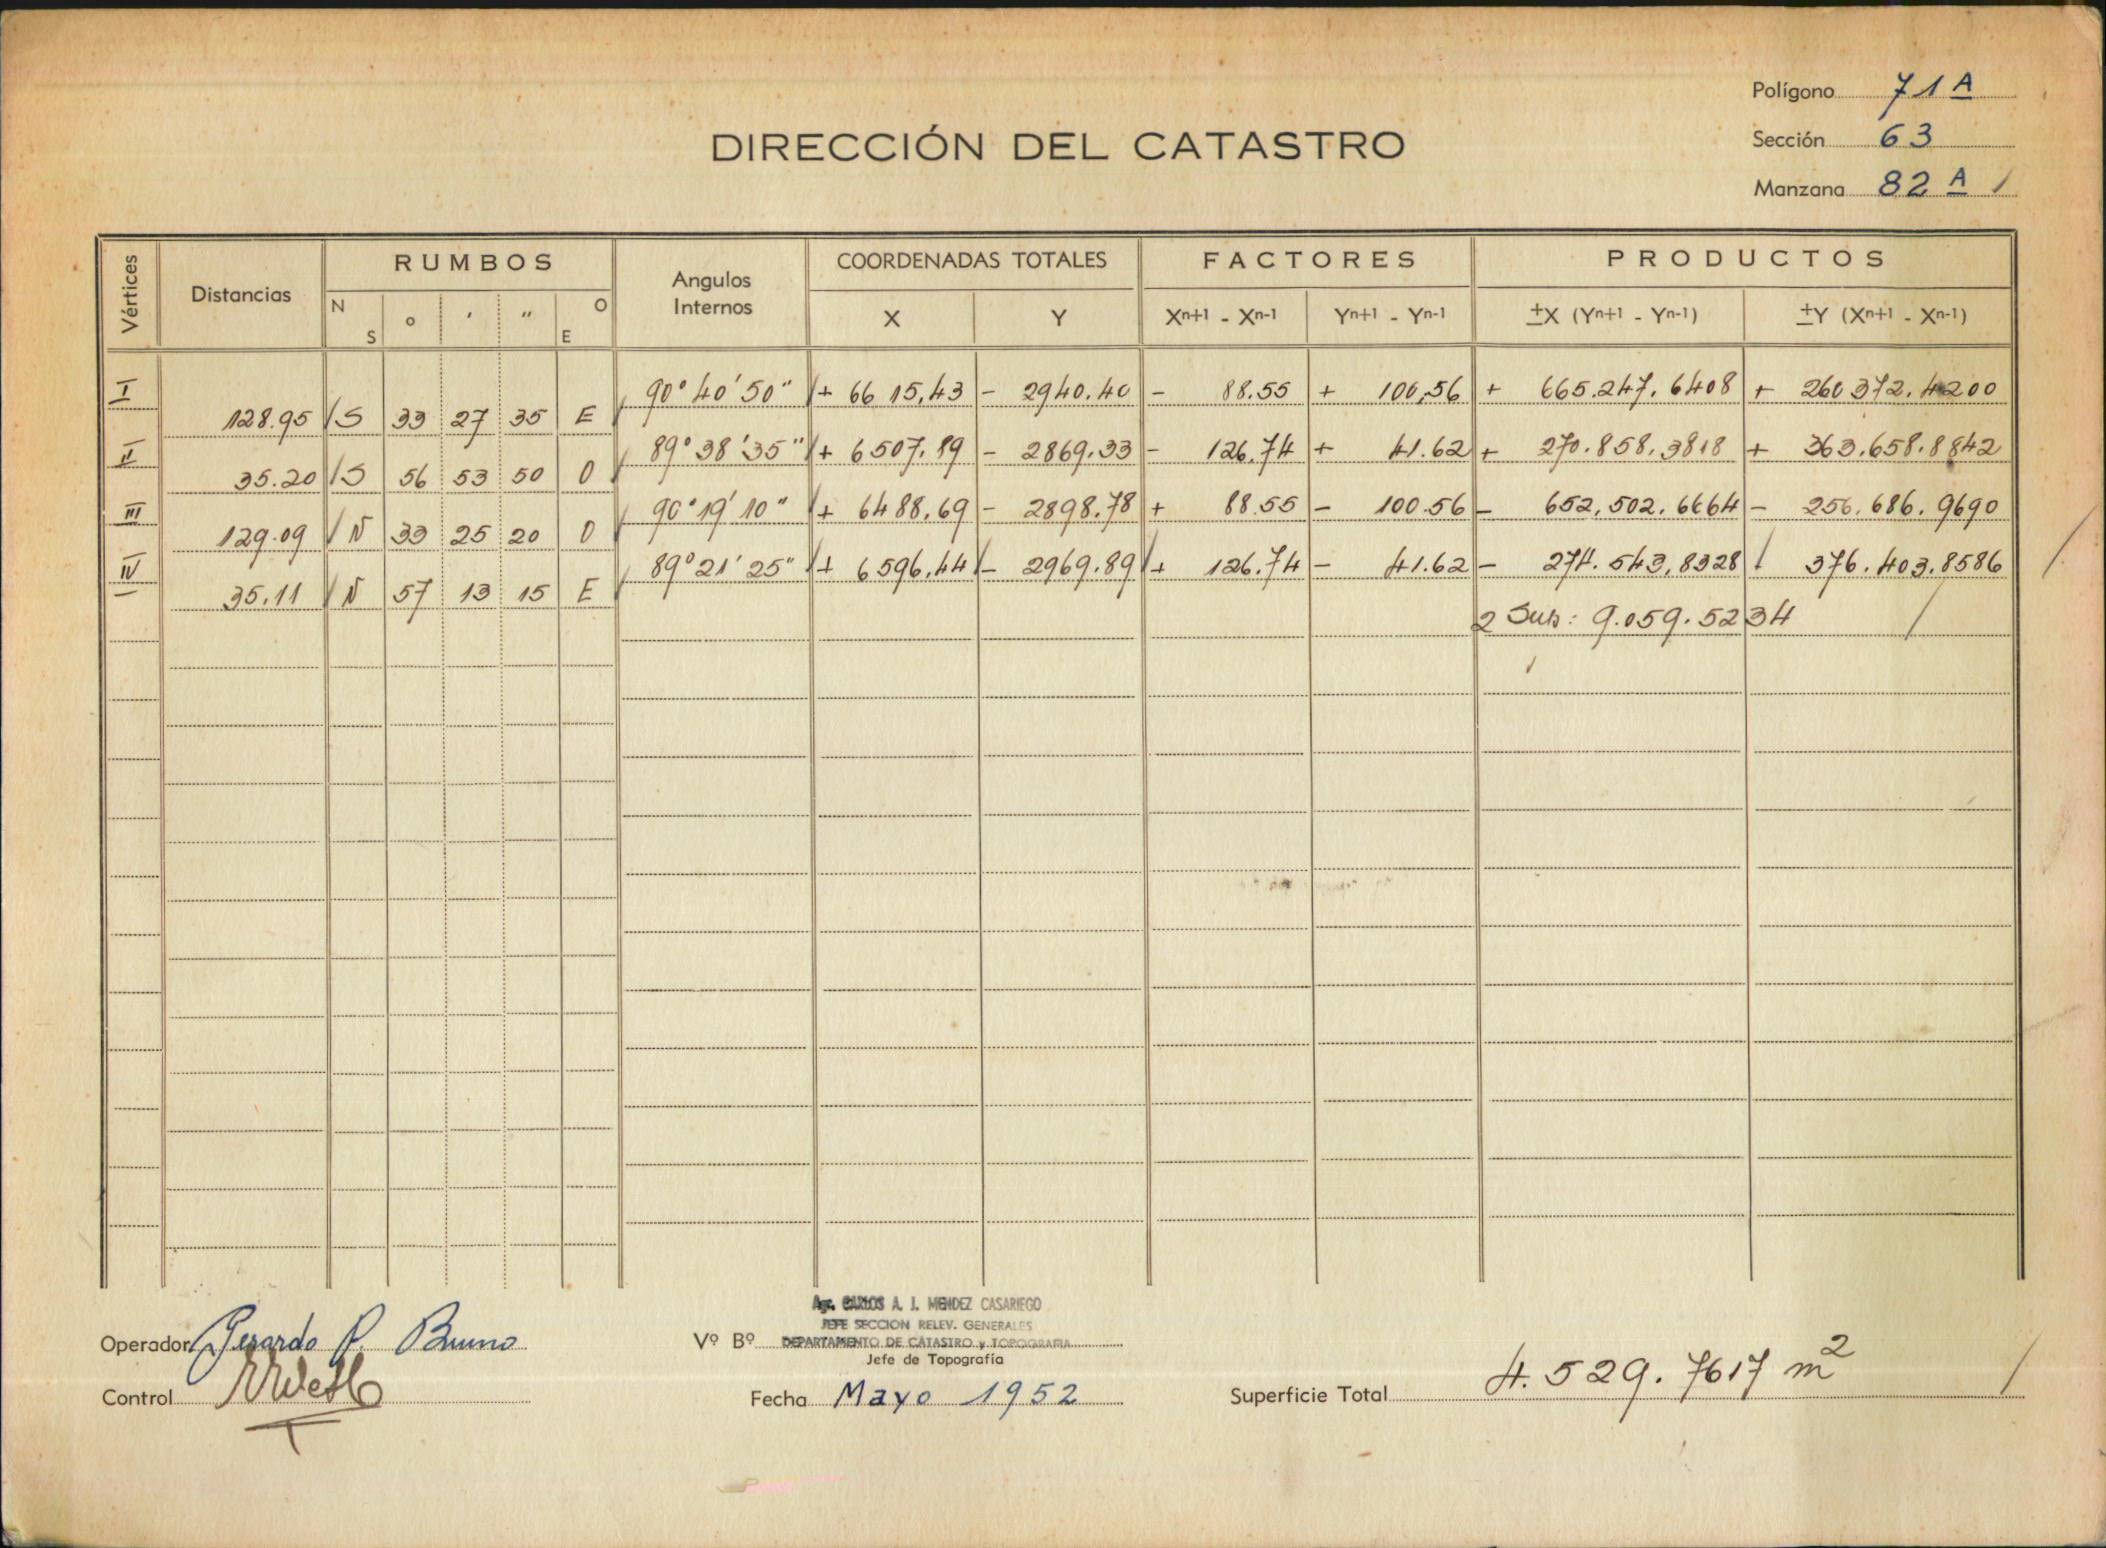 Polígono 71 A
DIRECCIÓN DEL CATASTRO
Sección 63
Manzana 82 A /
Vértices Distancias RUMBOS Angulos Internos COORDENADAS TOTALES FACTORES PRODUCTOS
N S ° ' " O E X Y Xn+1 - Xn-1 Yn+1 - Yn-1 ±X (Yn+1 - Yn-1) ±Y (Xn+1 - Xn-1)
I 90° 40' 50" + 6615,43 - 2940.40 - 88.55 + 100,56 + 665.247,6408 + 260372.4200
128.95 S 33 27 35 E
II 89° 38' 35" + 6507.89 - 2869.33 - 126.74 + 41.62 + 270.858,3818 + 363.658.8842
35.20 S 56 53 50 O
III 90° 19' 10" + 6488,69 - 2898.78 + 88.55 - 100.56 - 652,502.6664 - 256.686.9690
129.09 N 33 25 20 O
IV 89° 21' 25" + 6596,44 - 2969.89 + 126.74 - 41.62 - 274.543,8328 / 376.403.8586
35.11 N 57 13 15 E
2 Sup: 9.059.5234
Agr. CARLOS A. J. MENDEZ CASARIEGO
JEFE SECCION RELEV. GENERALES
Operador Gerardo P. Bruno Vº Bº DEPARTAMENTO DE CATASTRO y TOPOGRAFIA
Jefe de Topografía
Control Fecha Mayo 1952 Superficie Total 4.529.7617 m2